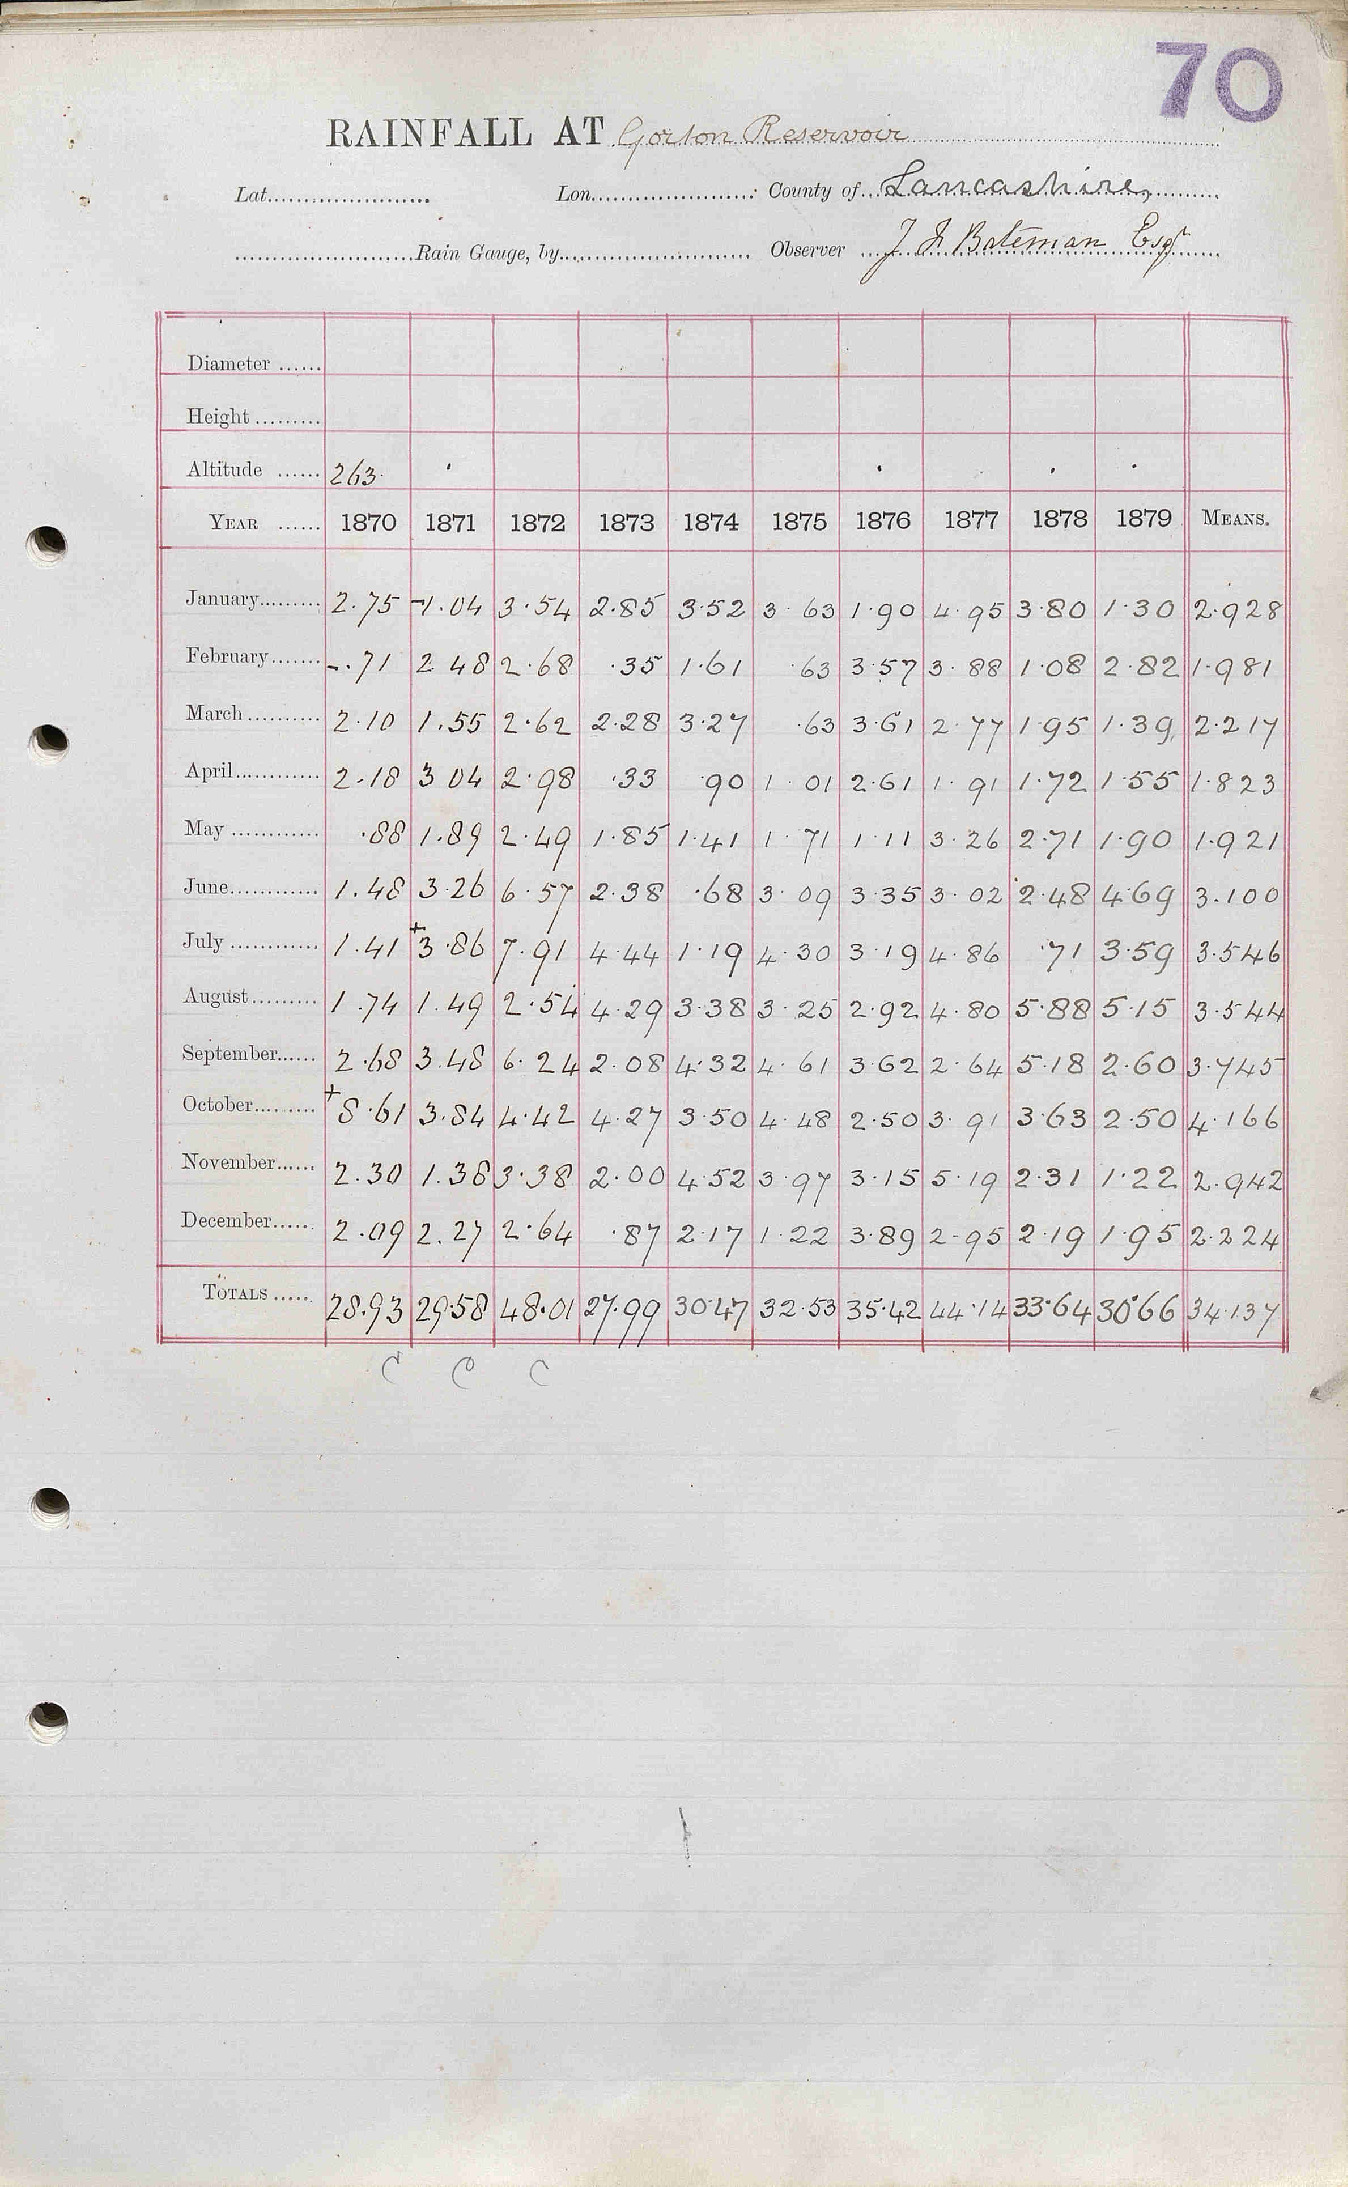 70
RAINFALL AT Gorton Reservoir
Lat...................... Lon.......................: County of Lancashire,
Rain Gauge, by........................... Observer J F Bateman Esqr
Diameter ......
Height .........
Altitude ...... 263
YEAR ...... 1870 1871 1872 1873 1874 1875 1876 1877 1878 1879 MEANS.
January......... 2.75 -1.04 3.54 2.85 3.52 3.63 1.90 4.95 3.80 1.30 2.928
February....... -.71 2.48 2.68 .35 1.61 .63 3.57 3.88 1.08 2.82 1.981
March .......... 2.10 1.55 2.62 2.28 3.27 .63 3.61 2.77 1.95 1.39 2.217
April............ 2.18 3.04 2.98 .33 .90 1.01 2.61 1.91 1.72 1.55 1.823
May ............ .88 1.89 2.49 1.85 1.41 1.71 1.11 3.26 2.71 1.90 1.921
June............ 1.48 3.26 6.57 2.38 .68 3.09 3.35 3.02 2.48 4.69 3.100
July ............ 1.41 +3.86 7.91 4.44 1.19 4.30 3.19 4.86 .71 3.59 3.546
August......... 1.74 1.49 2.54 4.29 3.38 3.25 2.92 4.80 5.88 5.15 3.544
September...... 2.68 3.48 6.24 2.08 4.32 4.61 3.62 2.64 5.18 2.60 3.745
October......... +8.61 3.84 4.42 4.27 3.50 4.48 2.50 3.91 3.63 2.50 4.166
November...... 2.30 1.38 3.38 2.00 4.52 3.97 3.15 5.19 2.31 1.22 2.942
December..... 2.09 2.27 2.64 .87 2.17 1.22 3.89 2.95 2.19 1.95 2.224
TOTALS ..... 28.93 29.58 48.01 27.99 30.47 32.53 35.42 44.14 33.64 30.66 34.137
C C C